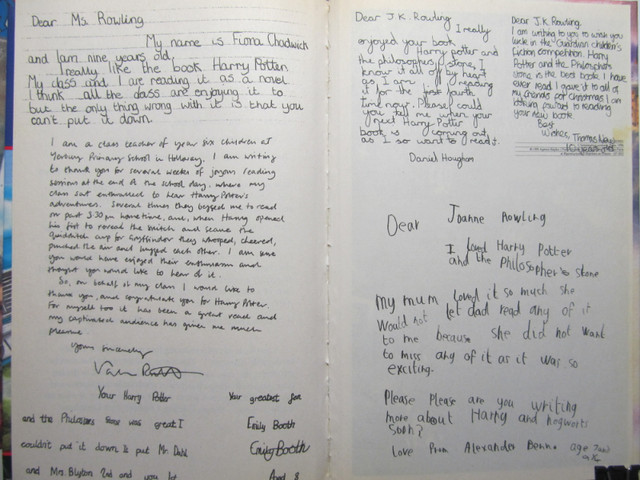 Dear Ms. Rowling
My name is Fiona Chadwick
and I am nine years old.
I really like the book Harry Potter
My class and I are reading it as a novel
I think all the class are enjoying it to
but the only thing wrong with it is that you
can't put it down.
I am a class teacher of year six children at
Yerbury Primary School in Holloway. I am writing
to thank you for several weeks of joyous reading
sessions at the end of the school day, where my
class sat enthralled to hear Harry Potter's
adventures. Several times they begged me to read
on past 3-30 pm hometime, and, when Harry opened
his fist to reveal the snitch and secure the
quidditch cup for Gryffindor they whooped, cheered,
punched the air and hugged each other. I am sure
you would have enjoyed their enthusiasm and
thought you would like to hear of it.
So, on behalf of my class I would like to
thank you, and congratulate you for Harry Potter.
For myself too it has been a great read and
my captivated audience has given me much
pleasure
Yours sincerely
Your Harry Potter
and the Philosophers Stone was great I
couldn't put it down I put Mr. Dahl
and Mrs. Blyton 2nd and you 1st
Your greatest fan
Emily Booth
Emily Booth
Aged 8
Dear J.K. Rowling
I really
enjoyed your book
Harry potter and
the philosophers stone, I
know it all off by heart
as I am reading
it for the first fourth
time now. Please could
you tell me when your
next Harry Potter
book is coming out,
as I so want to read it.
Daniel Houghton
Dear J.K. Rowling.
I am writing to you to wish you
luck in the Guardian children's
fiction competition. Harry
Potter and the Philosopher's
stone is the best book I have
ever read I gave it to all of
my friends for christmas I am
looking forward to reading
your new book.
Best
Wishes, Thomas
Dear Joanne Rowling
I loved Harry Potter
and the Philosopher's stone
My mum loved it so much she
would not let dad read any of it
to me because she did not want
to miss any of it as it was so
exciting.
Please Please are you writing
more about Harry and hogwarts
soon?
Love from Alexander age